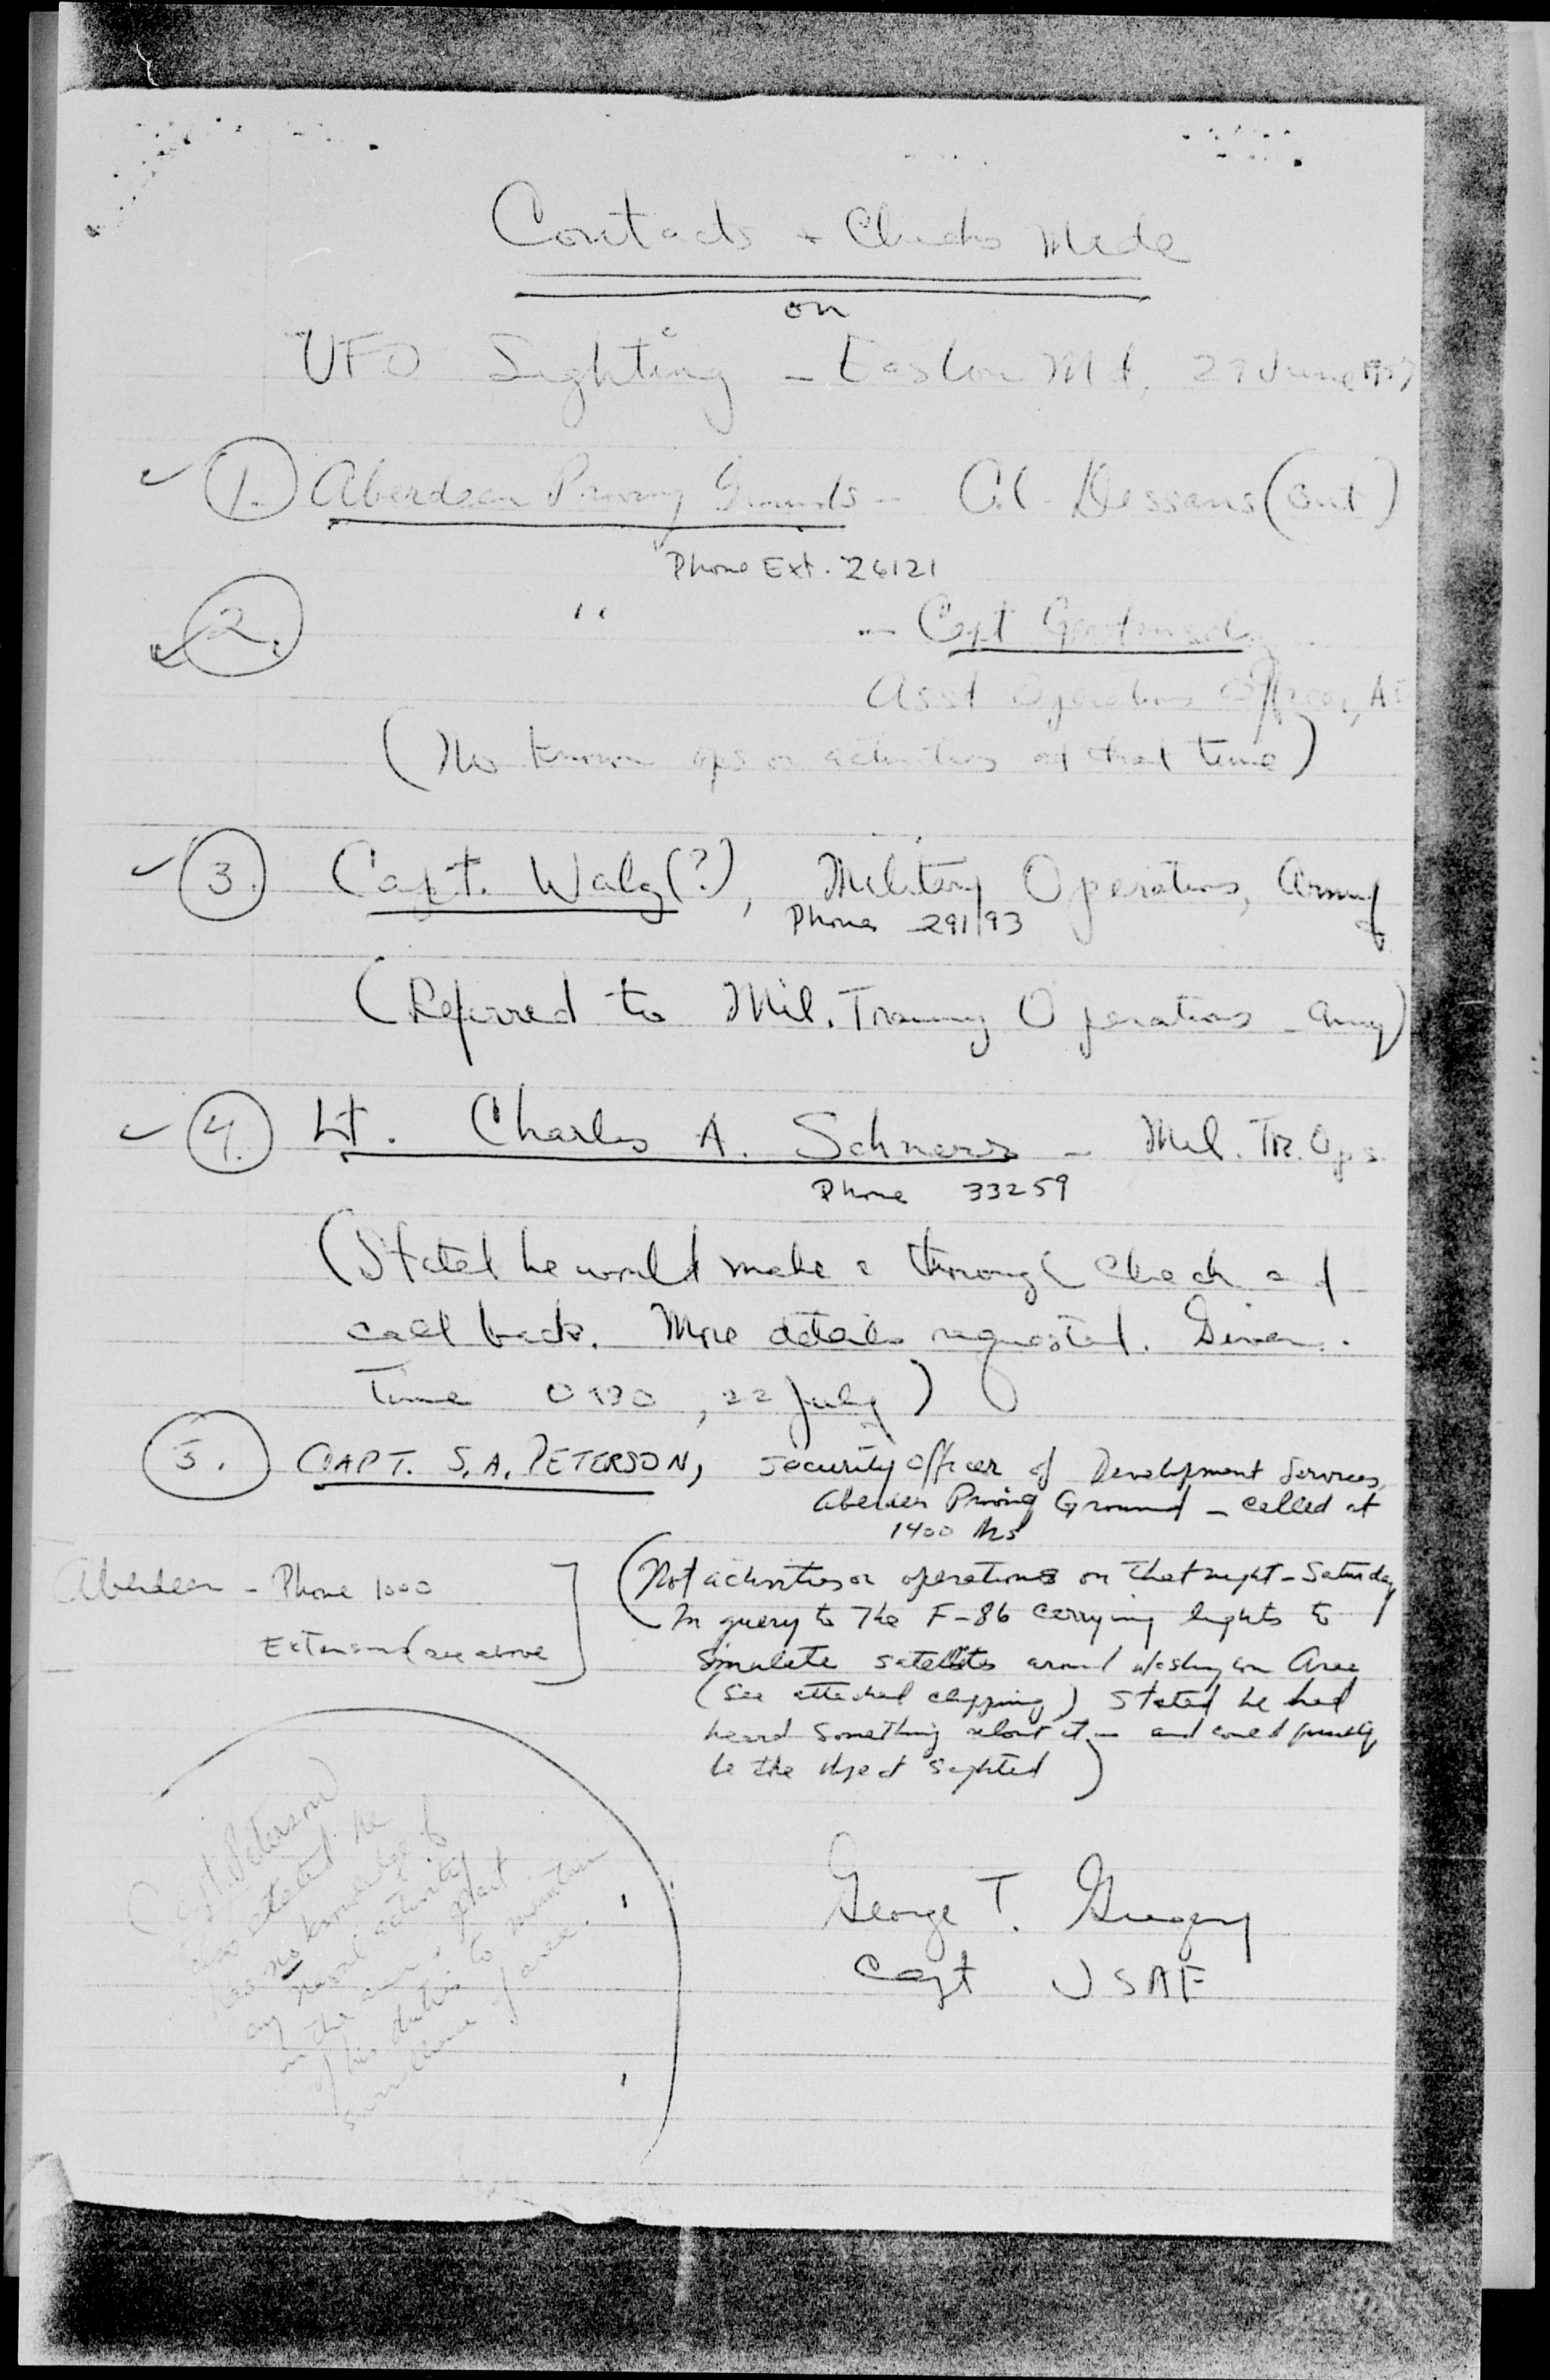 Contacts + Checks Made
on
UFO Sighting - Easton Md, 29 June 1957
1. Aberdeen Proving Grounds - Col. Dessans (out)
Phone Ext. 26121
2. " - Capt
Asst Operations Officer, A
(No known ops or activities at that time)
3. Capt. Walz(?), Military Operations, Army
Phone 29193
(Referred to Mil. Training Operations - Army)
4. Lt. Charles A. Schnerr - Mil. Tr. Ops.
Phone 33259
(Stated he would make a through check and
call back. More details requested. Given.
Time 0930, 22 July)
5. CAPT. S. A. PETERSON, Security Officer of Development Services,
Proving Ground - called at
1400 hrs
Aberdeen - Phone 1000
Extension (see above
(Not activities or operations on that night - Saturday
In query to the F-86 carrying lights to
simulate satellites around Washington Area
(See attached clipping) Stated he had
heard something about it - and could possibly
be the object sighted)
(Capt. Peterson
also stated he
has no knowledge of
any naval activity
in the area - part
of his duties to maintain
surveillance of area.
George T. Gregory
Capt USAF